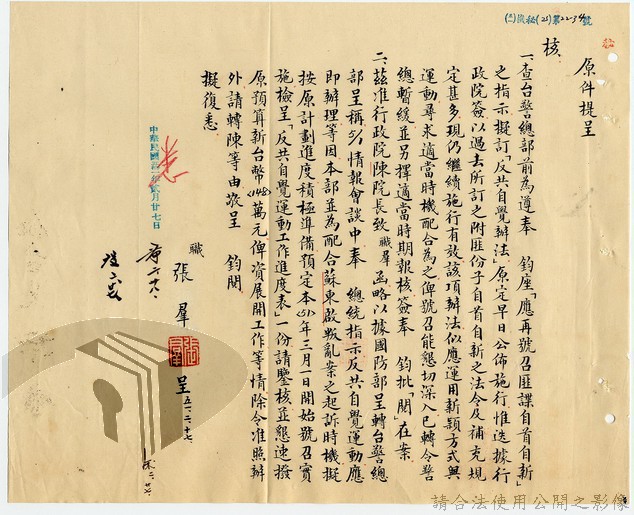 (51)機秘(乙)第22-34號
原件提呈
核
一、查台警總部前為遵奉　鈞座「應再號召匪諜自首自新」
之指示擬訂「反共自覺辦法」原定早日公佈施行惟迭據行
政院簽以過去所訂之附匪份子自首自新之法令及補充規
定甚多現仍繼續施行有效該項辦法似應運用新穎方式與
運動尋求適當時機配合為之俾號召能懇切深入已轉令警
總暫緩並另擇適當時期報核簽奉　鈞批「閱」在案
二、茲准行政院陳院長致職羣函略以據國防部呈轉台警總
部呈稱5/1情報會談中奉　總統指示反共自覺運動應
即辦理等因本部並為配合蘇東啟叛亂案之起訴時機擬
按原計劃進度積極準備預定本(51)年三月一日開始號召實
施檢呈「反共自覺運動工作進度表」一份請鑒核並懇速撥
原預算新台幣(148)萬元俾資展開工作等情除令准照辦
外請轉陳等由敬呈　鈞閱
擬復悉
職張羣呈 五一、二、十七
悉
請合法使用公開之影像